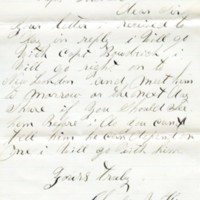 Dear Sir
Your letter i received to
day in reply i will go
with Capt
i
will go right on to
and meet him
to morrow or the next day
if you should see
him before i do you can
tell him he can depend on
me i will go with him
Yours Truly